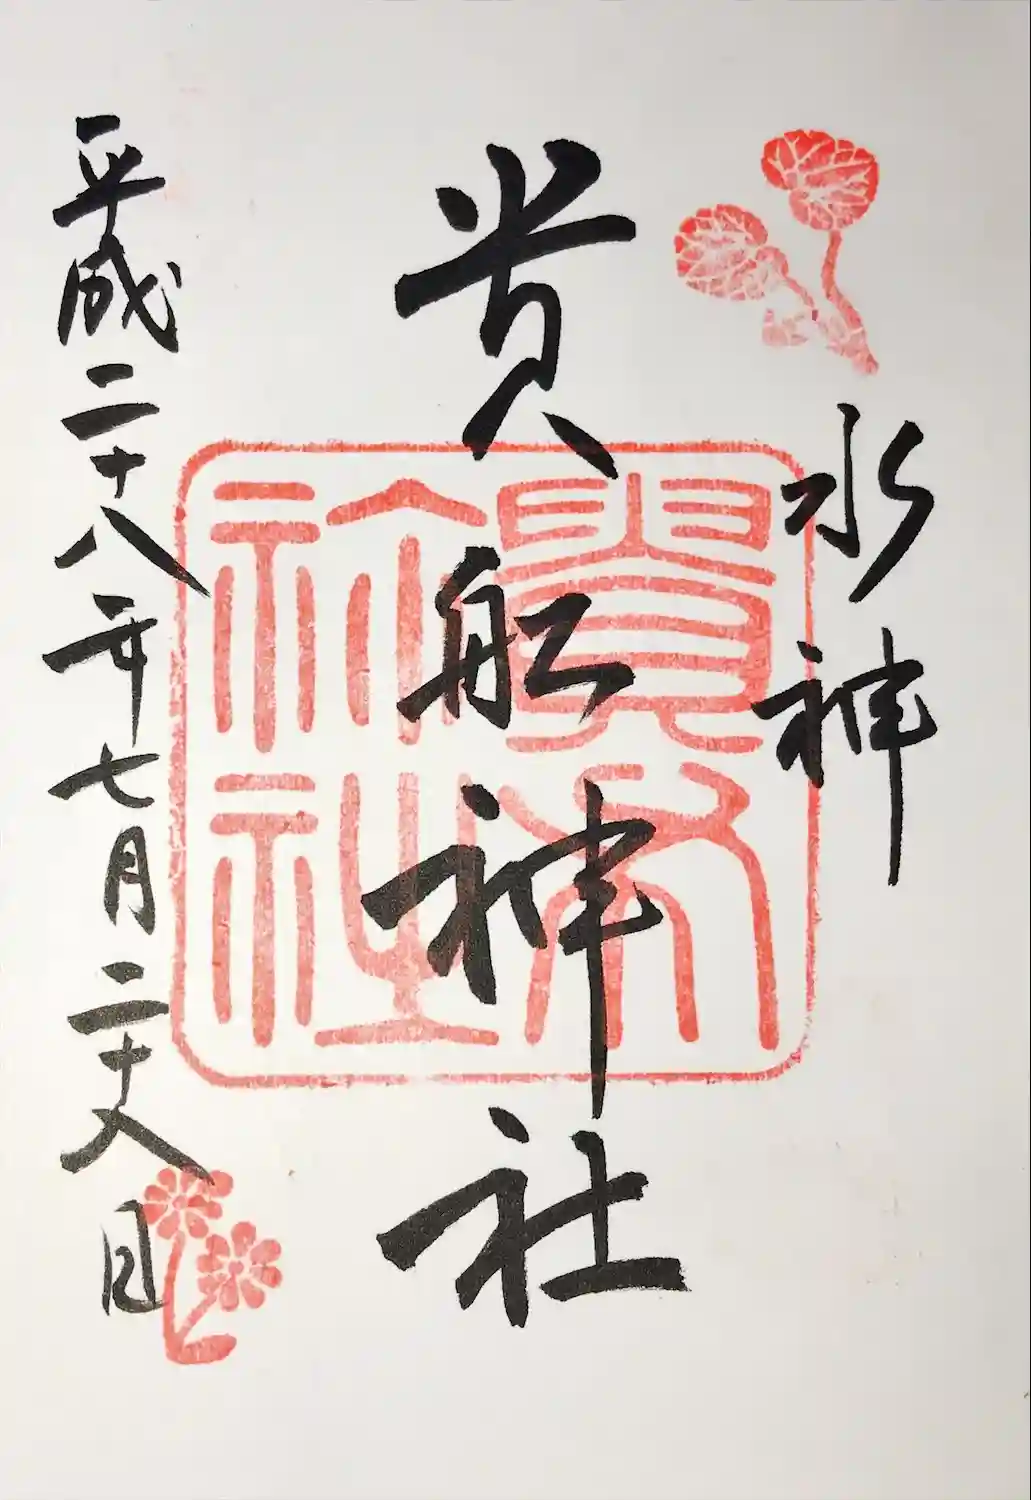 水神
貴船神社
貴布祢社
平成二十八年七月二十八日